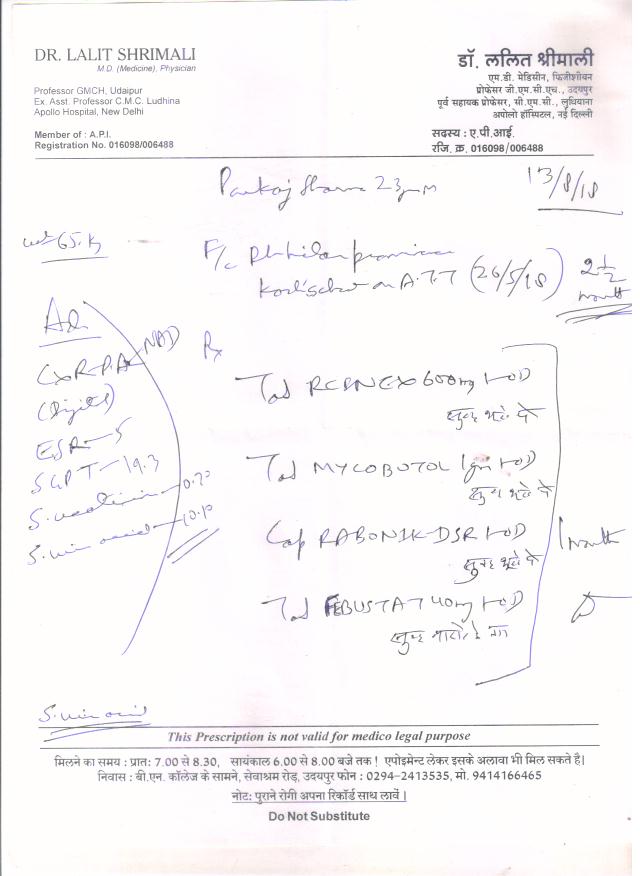 DR. LALIT SHRIMALI
M.D. (Medicine), Physician
Professor GMCH, Udaipur
Ex. Asst. Professor C.M.C. Ludhina
Apollo Hospital, New Delhi
Member of : A.P.I.
Registration No. 016098/006488
डॉ. ललित श्रीमाली
एम.डी. मेडिसीन, फिजीशीयन
प्रोफेसर जी.एम.सी.एच., उदयपुर
पूर्व सहायक प्रोफेसर, सी.एम.सी., लुधियाना
अपोलो हॉस्पिटल, नई दिल्ली
सदस्य : ए.पी.आई.
रजि. क्र. 016098/006488
13/8/18
Pankaj Sharma 23
wt 65 kg
F/c
on A.T.T (26/5/18) 2 1/2 month
Adv
CXR-PA NAD
(Digital)
ESR-5
SGPT-19.3
S. 0.70
S. uric acid 10.10
Rx
Tab RCBNEX 600mg 1-OD
सुबह भूखे पेट
Tab MYCOBUTOL 1gm 1-OD
सुबह भूखे पेट
Cap RABONIK-DSR 1-OD
सुबह भूखे पेट
1 month
Tab FEBUSTAT 40mg 1-OD
सुबह
S. uric acid
This Prescription is not valid for medico legal purpose
मिलने का समय : प्रातः 7.00 से 8.30, सायंकाल 6.00 से 8.00 बजे तक ! एपोइमेन्ट लेकर इसके अलावा भी मिल सकते है।
निवास : बी.एन. कॉलेज के सामने, सेवाश्रम रोड़, उदयपुर फोन : 0294-2413535, मो. 9414166465
नोट: पुराने रोगी अपना रिकॉर्ड साथ लावें ।
Do Not Substitute